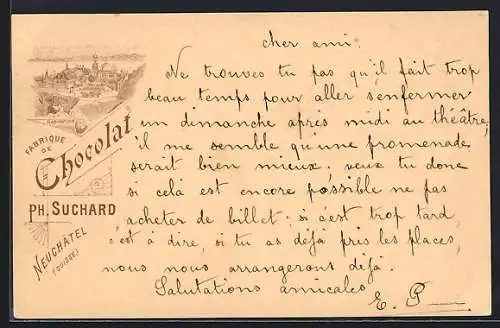 FABRIQUE
DE
Chocolat
PH. SUCHARD
NEUCHATEL
(SUISSE)
cher ami.
Ne trouves tu pas qu'il fait trop
beau temps pour aller s'enfermer
un dimanche après midi au théâtre,
il me semble qu'une promenade
serait bien mieux. veux tu donc
si celà est encore possible ne pas
acheter de billet; si c'est trop tard,
c'est à dire, si tu as déjà pris les places,
nous nous arrangerons déjà.
Salutations amicales
E. P